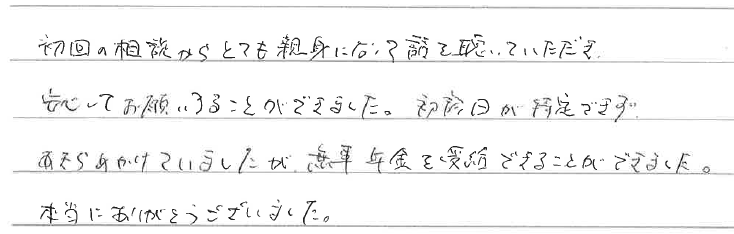 初回の相談からとても親身になって話を聴いていただき、
安心してお願いすることができました。初診日が特定できず
あきらめかけていましたが、無事年金を受給できることができました。
本当にありがとうございました。